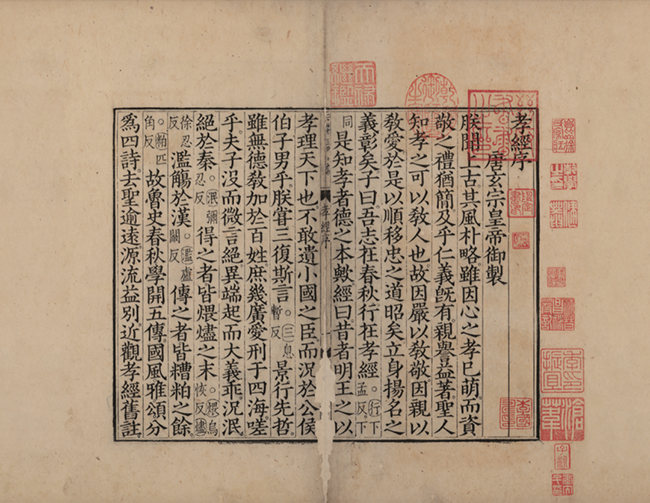 孝經序
唐玄宗皇帝御製
朕聞上古其風朴略雖因心之孝已萌而資
敬之禮猶簡及乎仁義旣有親譽益著聖人
知孝之可以敎人也故因嚴以敎敬因親以
敎愛於是以順移忠之道昭矣立身揚名之
義彰矣子曰吾志在春秋行在孝經○行下孟反下
同是知孝者德之本歟經曰昔者明王之以
孝理天下也不敢遺小國之臣而況於公侯
伯子男乎朕甞三復斯言○三息暫反景行先哲
雖無德敎加於百姓庶幾廣愛刑于四海嗟
乎夫子沒而微言絕異端起而大義乖況泯
絕於秦○泯彌忍反得之者皆煨燼之末○煨烏恢反燼
徐忍反濫觴於漢○濫盧闞反傳之者皆糟粕之餘
○粕匹角反故魯史春秋學開五傳國風雅頌分
爲四詩去聖逾遠源流益別近觀孝經舊註